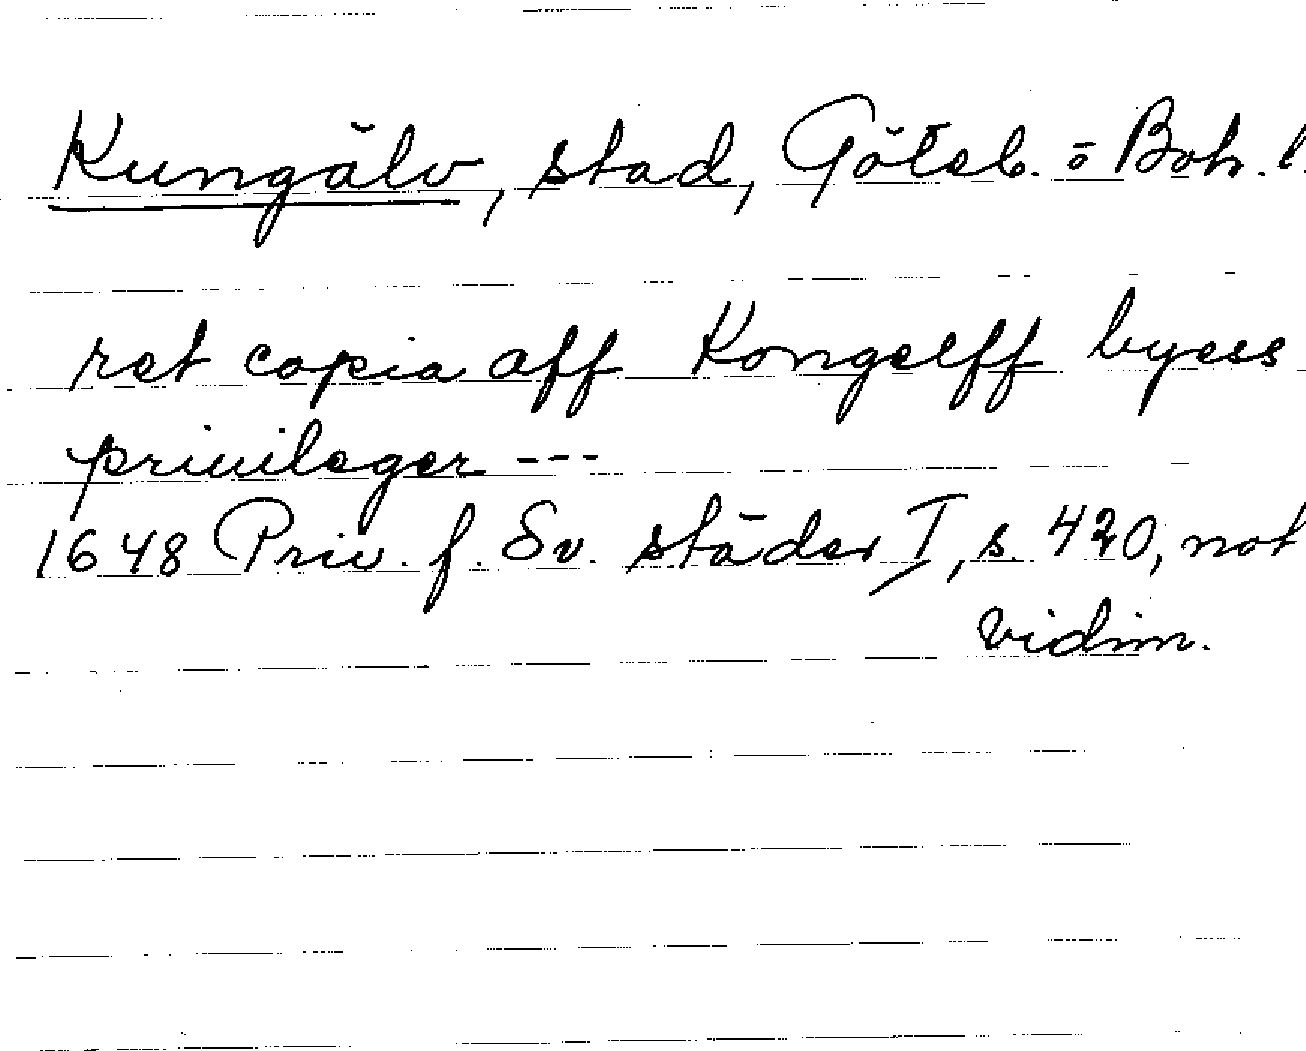 Kungälv, stad, Göteb. o Boh. l.
ret copia aff Kongelff byess
priuileger ---
1648 Priv. f. Sv. städer I, s. 420, not
vidim.